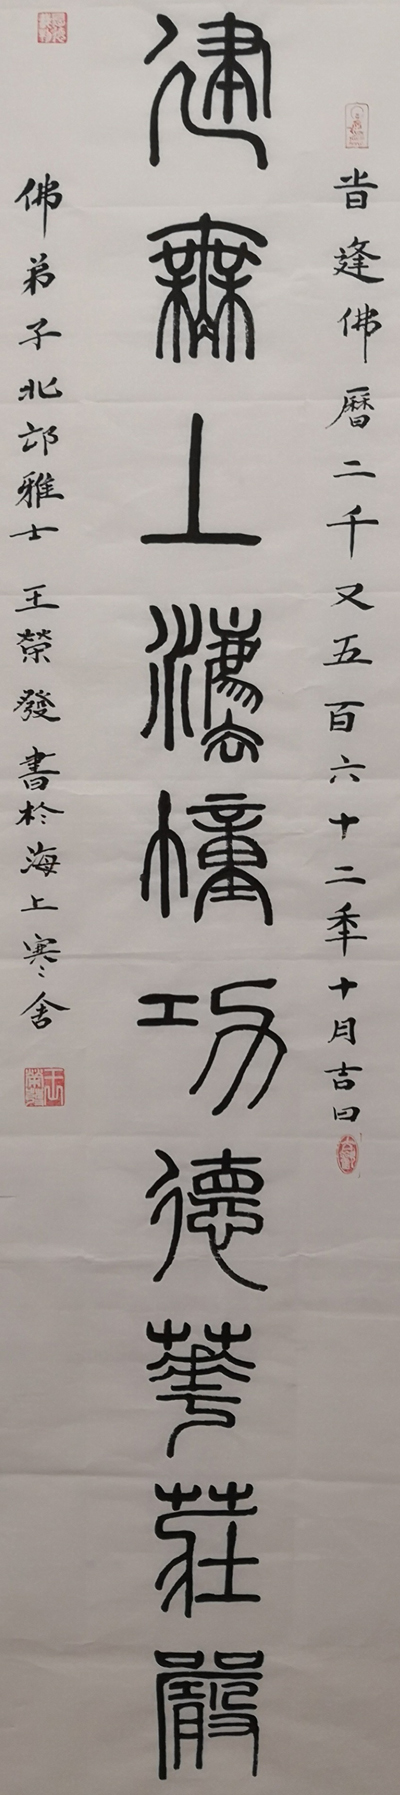 旹逢佛曆二千又五百六十二秊十月吉日
建無上灋幢功德華莊嚴
佛弟子北邙雅士王榮發書於海上寒舍